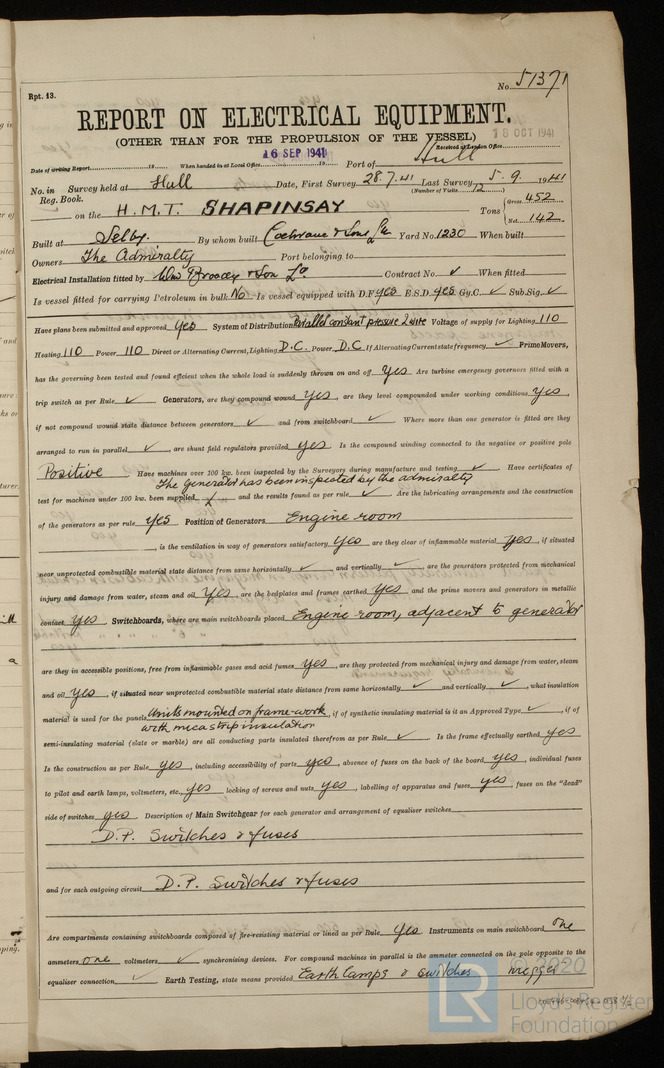 Rpt. 13.
No. 51371
REPORT ON ELECTRICAL EQUIPMENT.
(OTHER THAN FOR THE PROPULSION OF THE VESSEL)
Received at London Office 18 OCT 1941
16 SEP 1941
Date of writing Report 19 When handed in at Local Office 19 Port of Hull
No. in Survey held at Hull Date, First Survey 28.7.41 Last Survey 5.9.1941
Reg. Book. (Number of Visits 12)
on the H.M.T. SHAPINSAY Tons Gross 452
Net 142
Built at Selby. By whom built Cochrane & Sons Ltd Yard No. 1230 When built
Owners The Admiralty Port belonging to
Electrical Installation fitted by Wm Broady & Son Ld Contract No. ✓ When fitted
Is vessel fitted for carrying Petroleum in bulk No Is vessel equipped with D.F. yes E.S.D. yes Gy.C. ✓ Sub.Sig. ✓
Have plans been submitted and approved yes System of Distribution Parallel constant pressure 2 wire Voltage of supply for Lighting 110
Heating 110 Power 110 Direct or Alternating Current, Lighting D.C. Power D.C If Alternating Current state frequency ✓ Prime Movers,
has the governing been tested and found efficient when the whole load is suddenly thrown on and off yes Are turbine emergency governors fitted with a
trip switch as per Rule ✓ Generators, are they compound wound yes, are they level compounded under working conditions yes,
if not compound wound state distance between generators ✓ and from switchboard ✓ Where more than one generator is fitted are they
arranged to run in parallel ✓, are shunt field regulators provided yes Is the compound winding connected to the negative or positive pole
Positive Have machines over 100 kw. been inspected by the Surveyors during manufacture and testing ✓ Have certificates of
The generator has been inspected by the admiralty
test for machines under 100 kw. been supplied and the results found as per rule ✓ Are the lubricating arrangements and the construction
of the generators as per rule yes Position of Generators Engine room
, is the ventilation in way of generators satisfactory yes are they clear of inflammable material yes, if situated
near unprotected combustible material state distance from same horizontally ✓ and vertically ✓, are the generators protected from mechanical
injury and damage from water, steam and oil yes, are the bedplates and frames earthed yes and the prime movers and generators in metallic
contact yes Switchboards, where are main switchboards placed Engine room, adjacent to generator
are they in accessible positions, free from inflammable gases and acid fumes yes, are they protected from mechanical injury and damage from water, steam
and oil yes, if situated near unprotected combustible material state distance from same horizontally ✓ and vertically ✓, what insulation
material is used for the panels Units mounted on frame-work, if of synthetic insulating material is it an Approved Type ✓, if of
with mica strip insulation
semi-insulating material (slate or marble) are all conducting parts insulated therefrom as per Rule ✓ Is the frame effectually earthed yes
Is the construction as per Rule yes, including accessibility of parts yes, absence of fuses on the back of the board yes, individual fuses
to pilot and earth lamps, voltmeters, etc. yes locking of screws and nuts yes, labelling of apparatus and fuses yes, fuses on the "dead"
side of switches yes Description of Main Switchgear for each generator and arrangement of equaliser switches
D.P. Switches & fuses
and for each outgoing circuit D.P. Switches & fuses
Are compartments containing switchboards composed of fire-resisting material or lined as per Rule yes Instruments on main switchboard one
ammeters one voltmeters ✓ synchronising devices. For compound machines in parallel is the ammeter connected on the pole opposite to the
equaliser connection ✓ Earth Testing, state means provided Earth lamps & switches megger
LR
© 2020
Lloyd's Register
Foundation